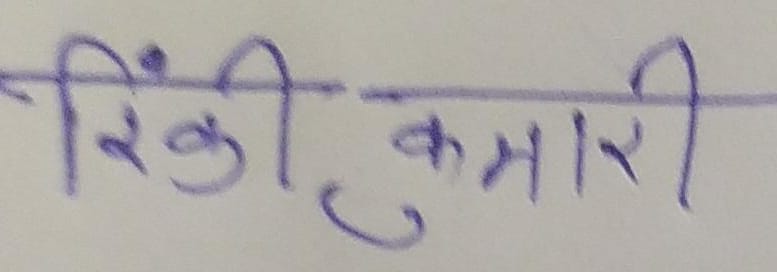 रिंकी कुमारी